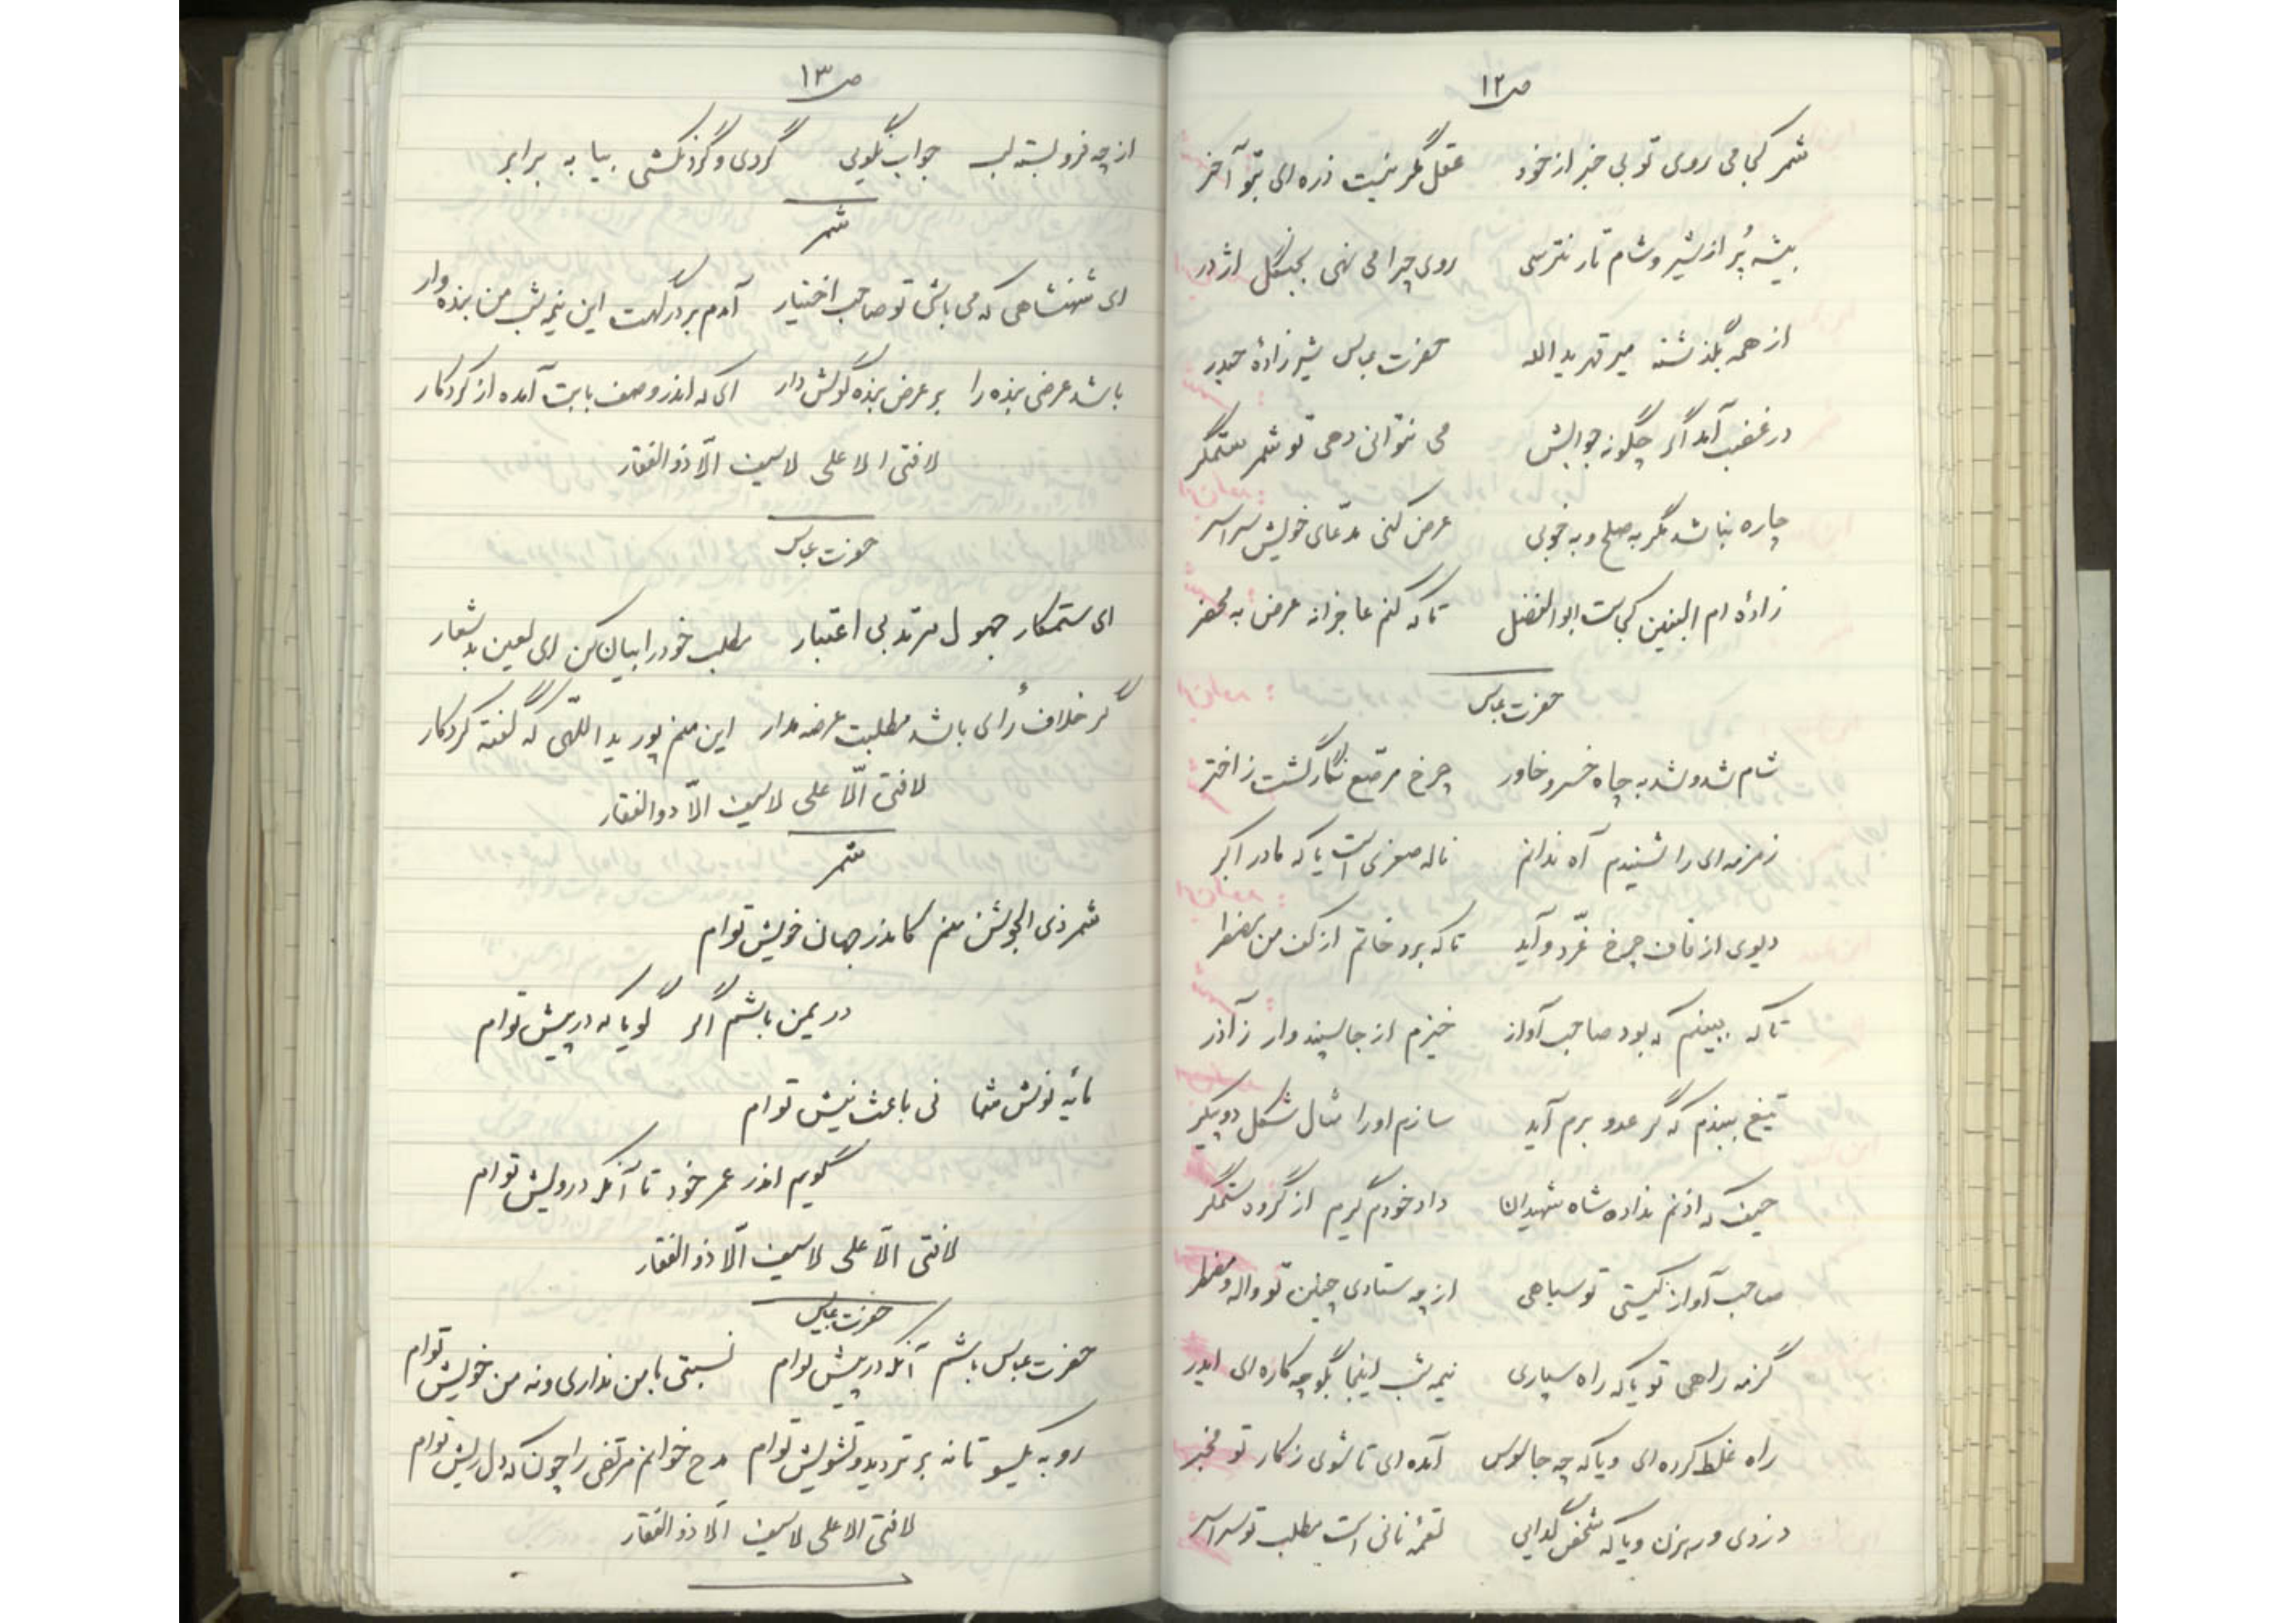 ص ۱۲
شمر کجا می روی تو بی خبر از خود عقل مگر نیست ذره ای بتو آخر
بیشه پُر از شیر و شام تار نترسی روی چرا می نهی بجنگل اژدر
از همه بگذشته میر قهر یدالله حضرت عباس شیر زادهٔ حیدر
در غضب آمد اگر چگونه جوابش می نتوانی دهی تو شمر ستمگر
چاره نباشد مگر به صلح و به خوبی عرض کنی مدّعای خویش سراسر
زادهٔ ام البنین کجاست ابوالفضل تا که کنم عاجزانه عرض به محضر
حضرت عباس
شام شد و شد به چاه خسرو خاور چرخ مرصّع نگار گشت ز اختر
زمزمه ای را شنیدم آه ندانم ناله صغری است یا که مادر اکبر
دیوی از قاف چرخ غرّد و آید تا که برد خاتم از کف من مضطر
تا که ببینم که بود صاحب آواز خیزم از جا سپند وار ز آذر
تیغ ببندم که گر عدو برم آید سازم او را مثال شکل دو پیکر
حیف که اذنم نداده شاه شهیدان داد خودم گیرم از گروه ستمگر
صاحب آواز کیستی تو سیاهی از چه ستادی چنین تو واله و مضطر
گزمه راهی تو یا که راه سپاری نیمه شب اینجا بگو چه کاره ای ایدر
راه غلط کرده ای و یا که چه جاسوس آمده ای تا شوی ز کار تو مخبر
دزدی و رهزن و یا که شخص گدایی لقمه نانی است مطلب تو سراسر
ص ۱۳
از چه فرو بسته لب جواب نگویی گردی و گردنکشی بیا به برابر
شمر
ای شهنشاهی که می باشی تو صاحب اختیار آمدم بر درگهت این نیمه شب من بنده وار
باشد عرضی بنده را بر عرض بنده گوش دار ای که اندر وصف بابت آمده از کردگار
لا فتی الا علی لا سیف الّا ذوالفقار
حضرت عباس
ای ستمکار جهول مرتد بی اعتبار مطلب خود را بیان کن ای لعین بد شعار
گر خلاف رأی باشد مطلبت عرضه مدار این منم پور ید اللّهی که گفته کردگار
لا فتی الّا علی لا سیف الّا ذوالفقار
شمر
شمر ذی الجوشن منم کاندر جهان خویش توام
در یمن باشم اگر گویا که در پیش توام
مایه نوش شما نی باعث نیش توام
گویم اندر عمر خود تا آنکه درویش توام
لا فتی الّا علی لا سیف الّا ذوالفقار
حضرت عباس
حضرت عباس باشم آنکه در پیش توام نسبتی با من نداری و نه من خویش توام
رو به یکسو تا نه بر تردید و تشویش توام مدح خوانم مرتضی را چون که دل ریش توام
لا فتی الا علی لا سیف الّا ذوالفقار